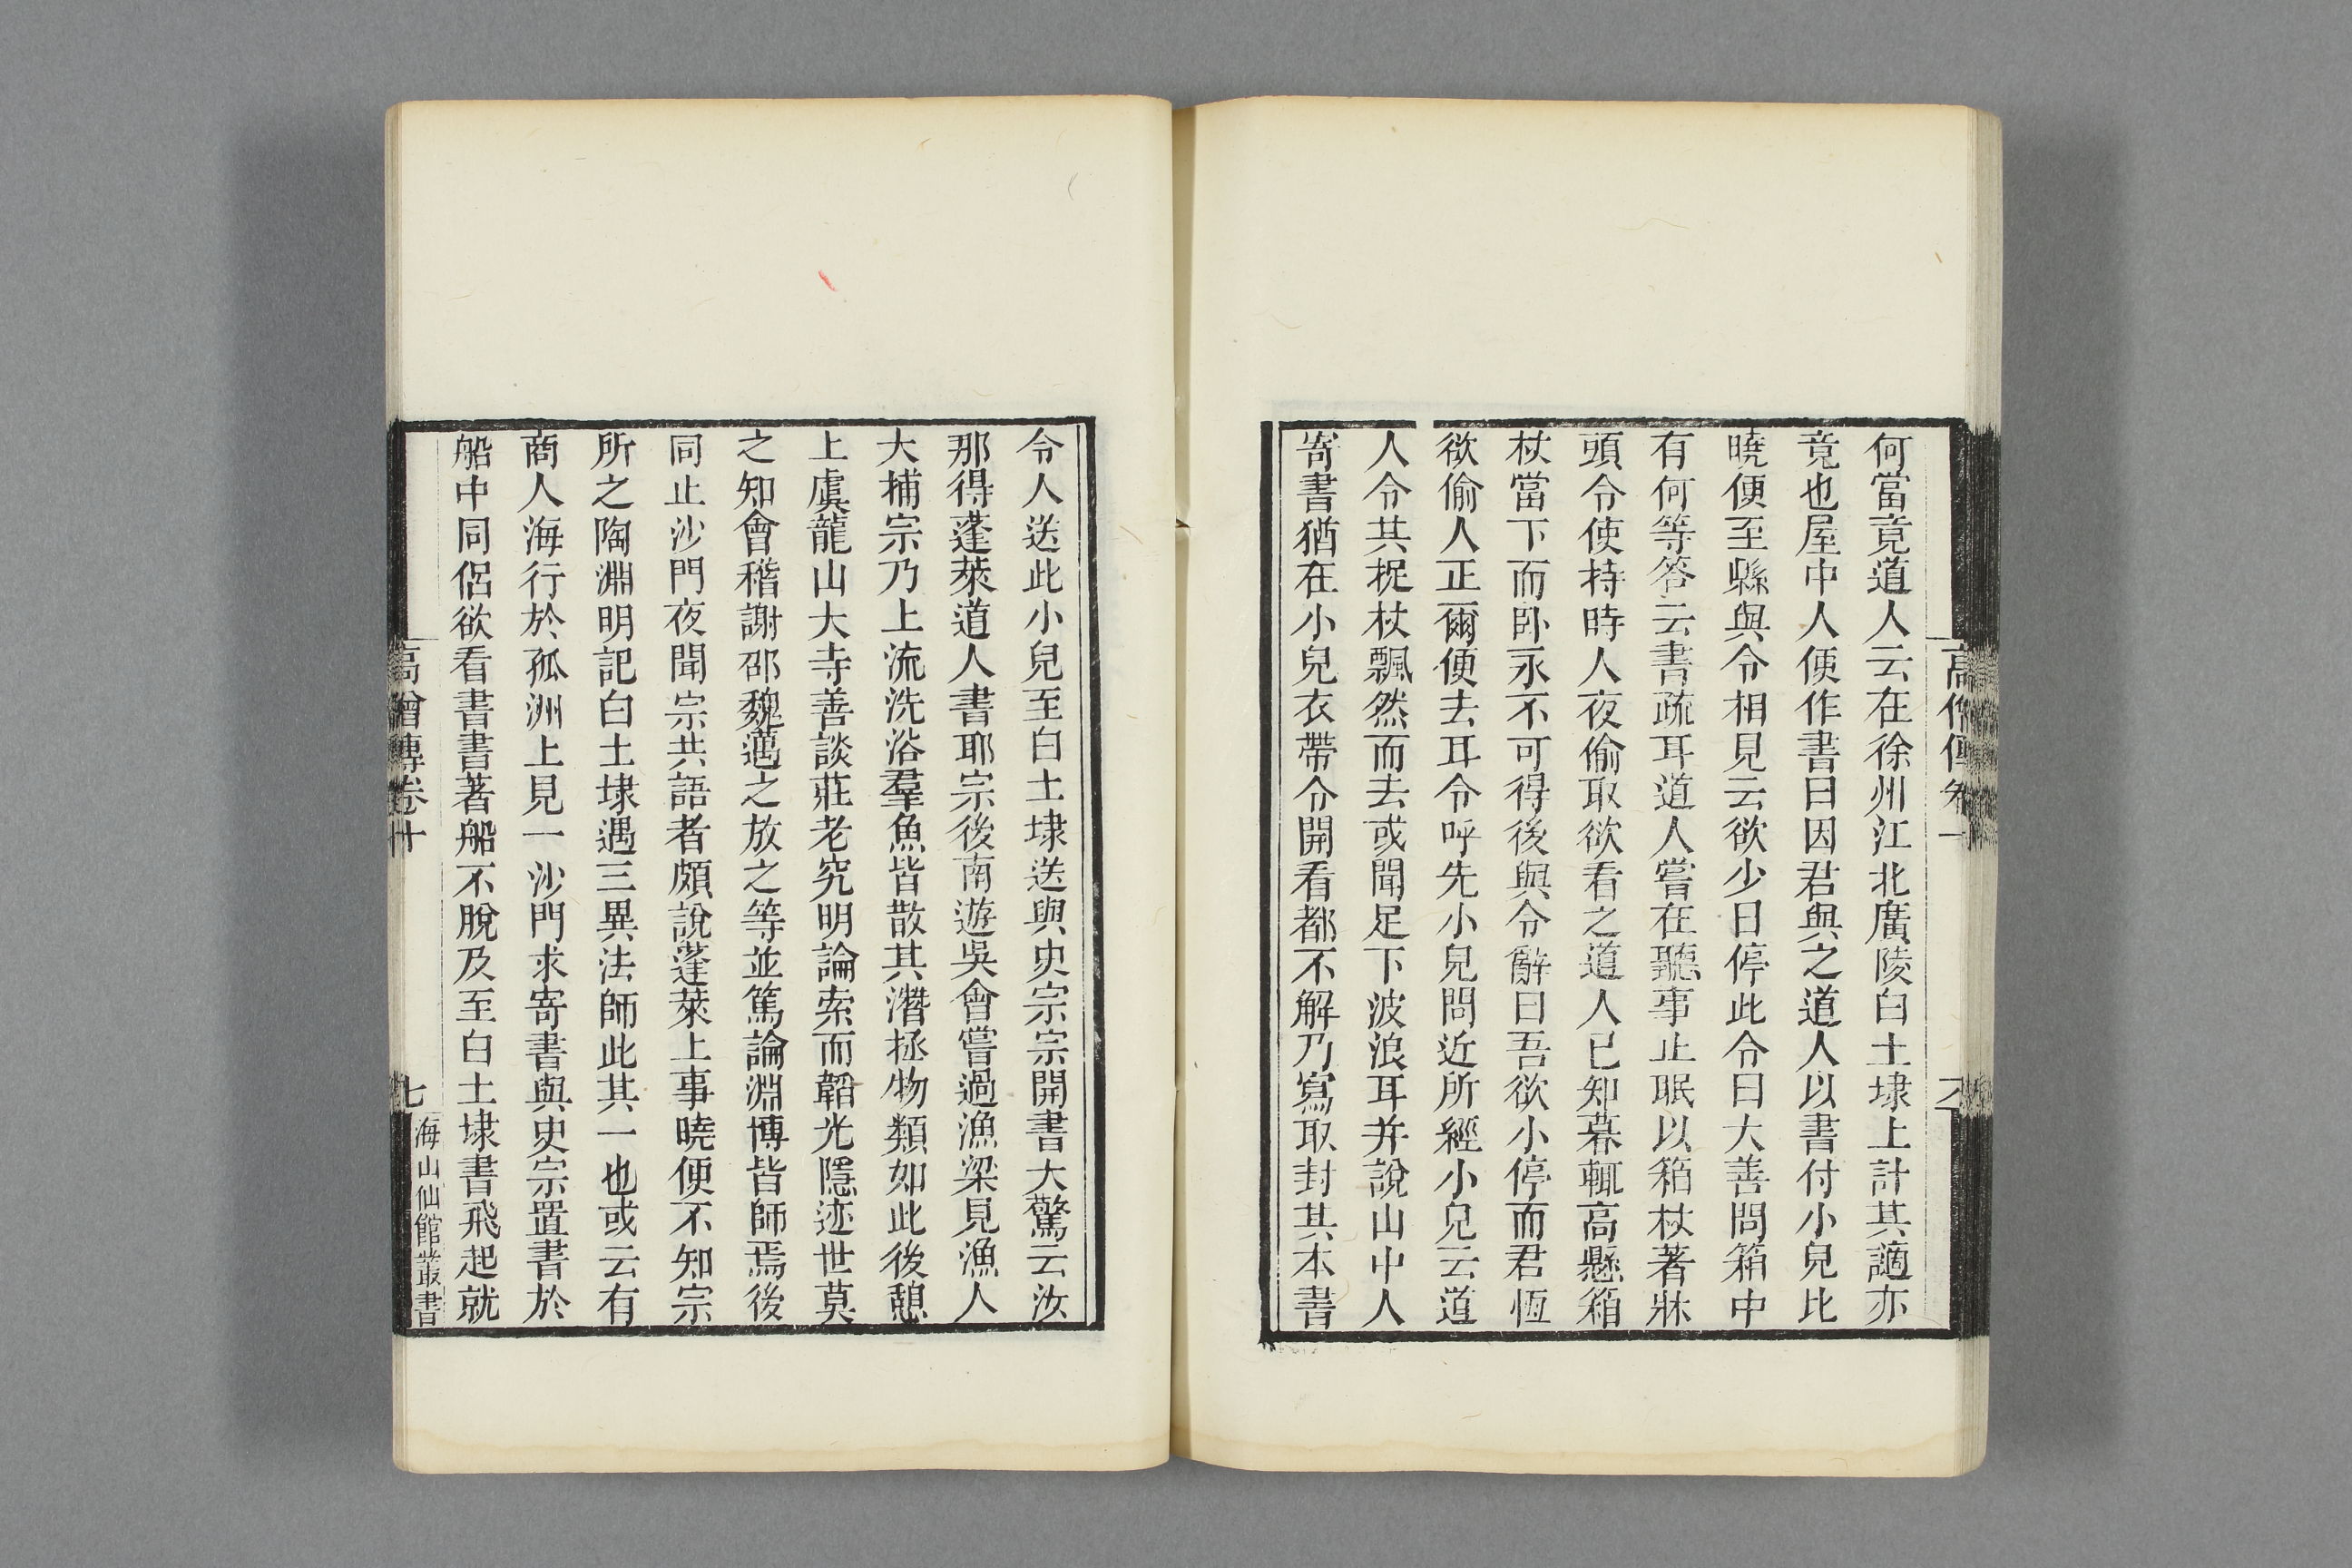 何當竟道人云在徐州江北廣陵白土埭上計其謫亦
竟也屋中人便作書曰因君與之道人以書付小兒比
曉便至縣與令相見云欲少日停此令曰大善問箱中
有何等答云書疏耳道人嘗在聽事止眠以箱杖著牀
頭令使持時人夜偷取欲看之道人已知暮輒高懸箱
杖當下而卧永不可得後與令辭曰吾欲小停而君恆
欲偷人正爾便去耳令呼先小兒問近所經小兒云道
人令其捉杖飄然而去或聞足下波浪耳并說山中人
寄書猶在小兒衣帶令開看都不解乃寫取封其本書
令人送此小兒至白土埭送與史宗宗開書大驚云汝
那得蓬萊道人書耶宗後南遊吳會嘗過漁梁見漁人
大捕宗乃上流洗浴羣魚皆散其潛拯物類如此後憩
上虞龍山大寺善談莊老究明論索而韜光隱迹世莫
之知會稽謝邵魏邁之放之等並篤論淵博皆師焉後
同止沙門夜聞宗共語者頗說蓬萊上事曉便不知宗
所之陶淵明記白土埭遇三異法師此其一也或云有
商人海行於孤洲上見一沙門求寄書與史宗置書於
船中同侶欲看書書著船不脫及至白土埭書飛起就
高僧傳卷十
七
海山仙館叢書